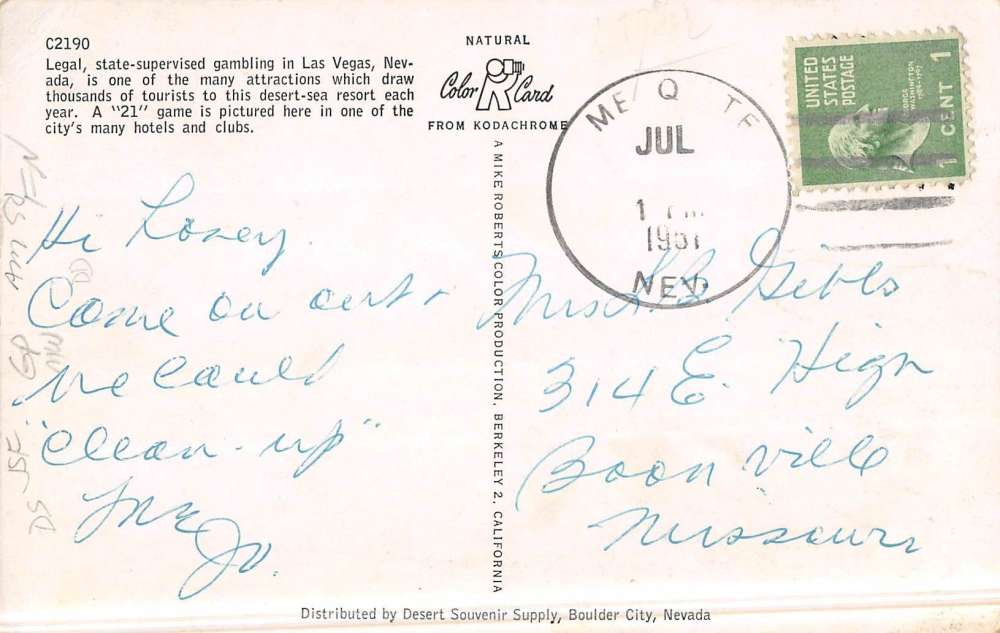 C2190
Legal, state-supervised gambling in Las Vegas, Nev-
ada, is one of the many attractions which draw
thousands of tourists to this desert-sea resort each
year. A "21" game is pictured here in one of the
city's many hotels and clubs.
NATURAL
Color Card
FROM KODACHROME
A MIKE ROBERTS COLOR PRODUCTION, BERKELEY 2, CALIFORNIA
JUL
1
NEV.
UNITED
STATES
POSTAGE
GEORGE
WASHINGTON
1 CENT 1
Hi
Come on out &
We could
"clean-up"
Jo.
Gibbs
314 E. High
Boonville
Missouri
Distributed by Desert Souvenir Supply, Boulder City, Nevada